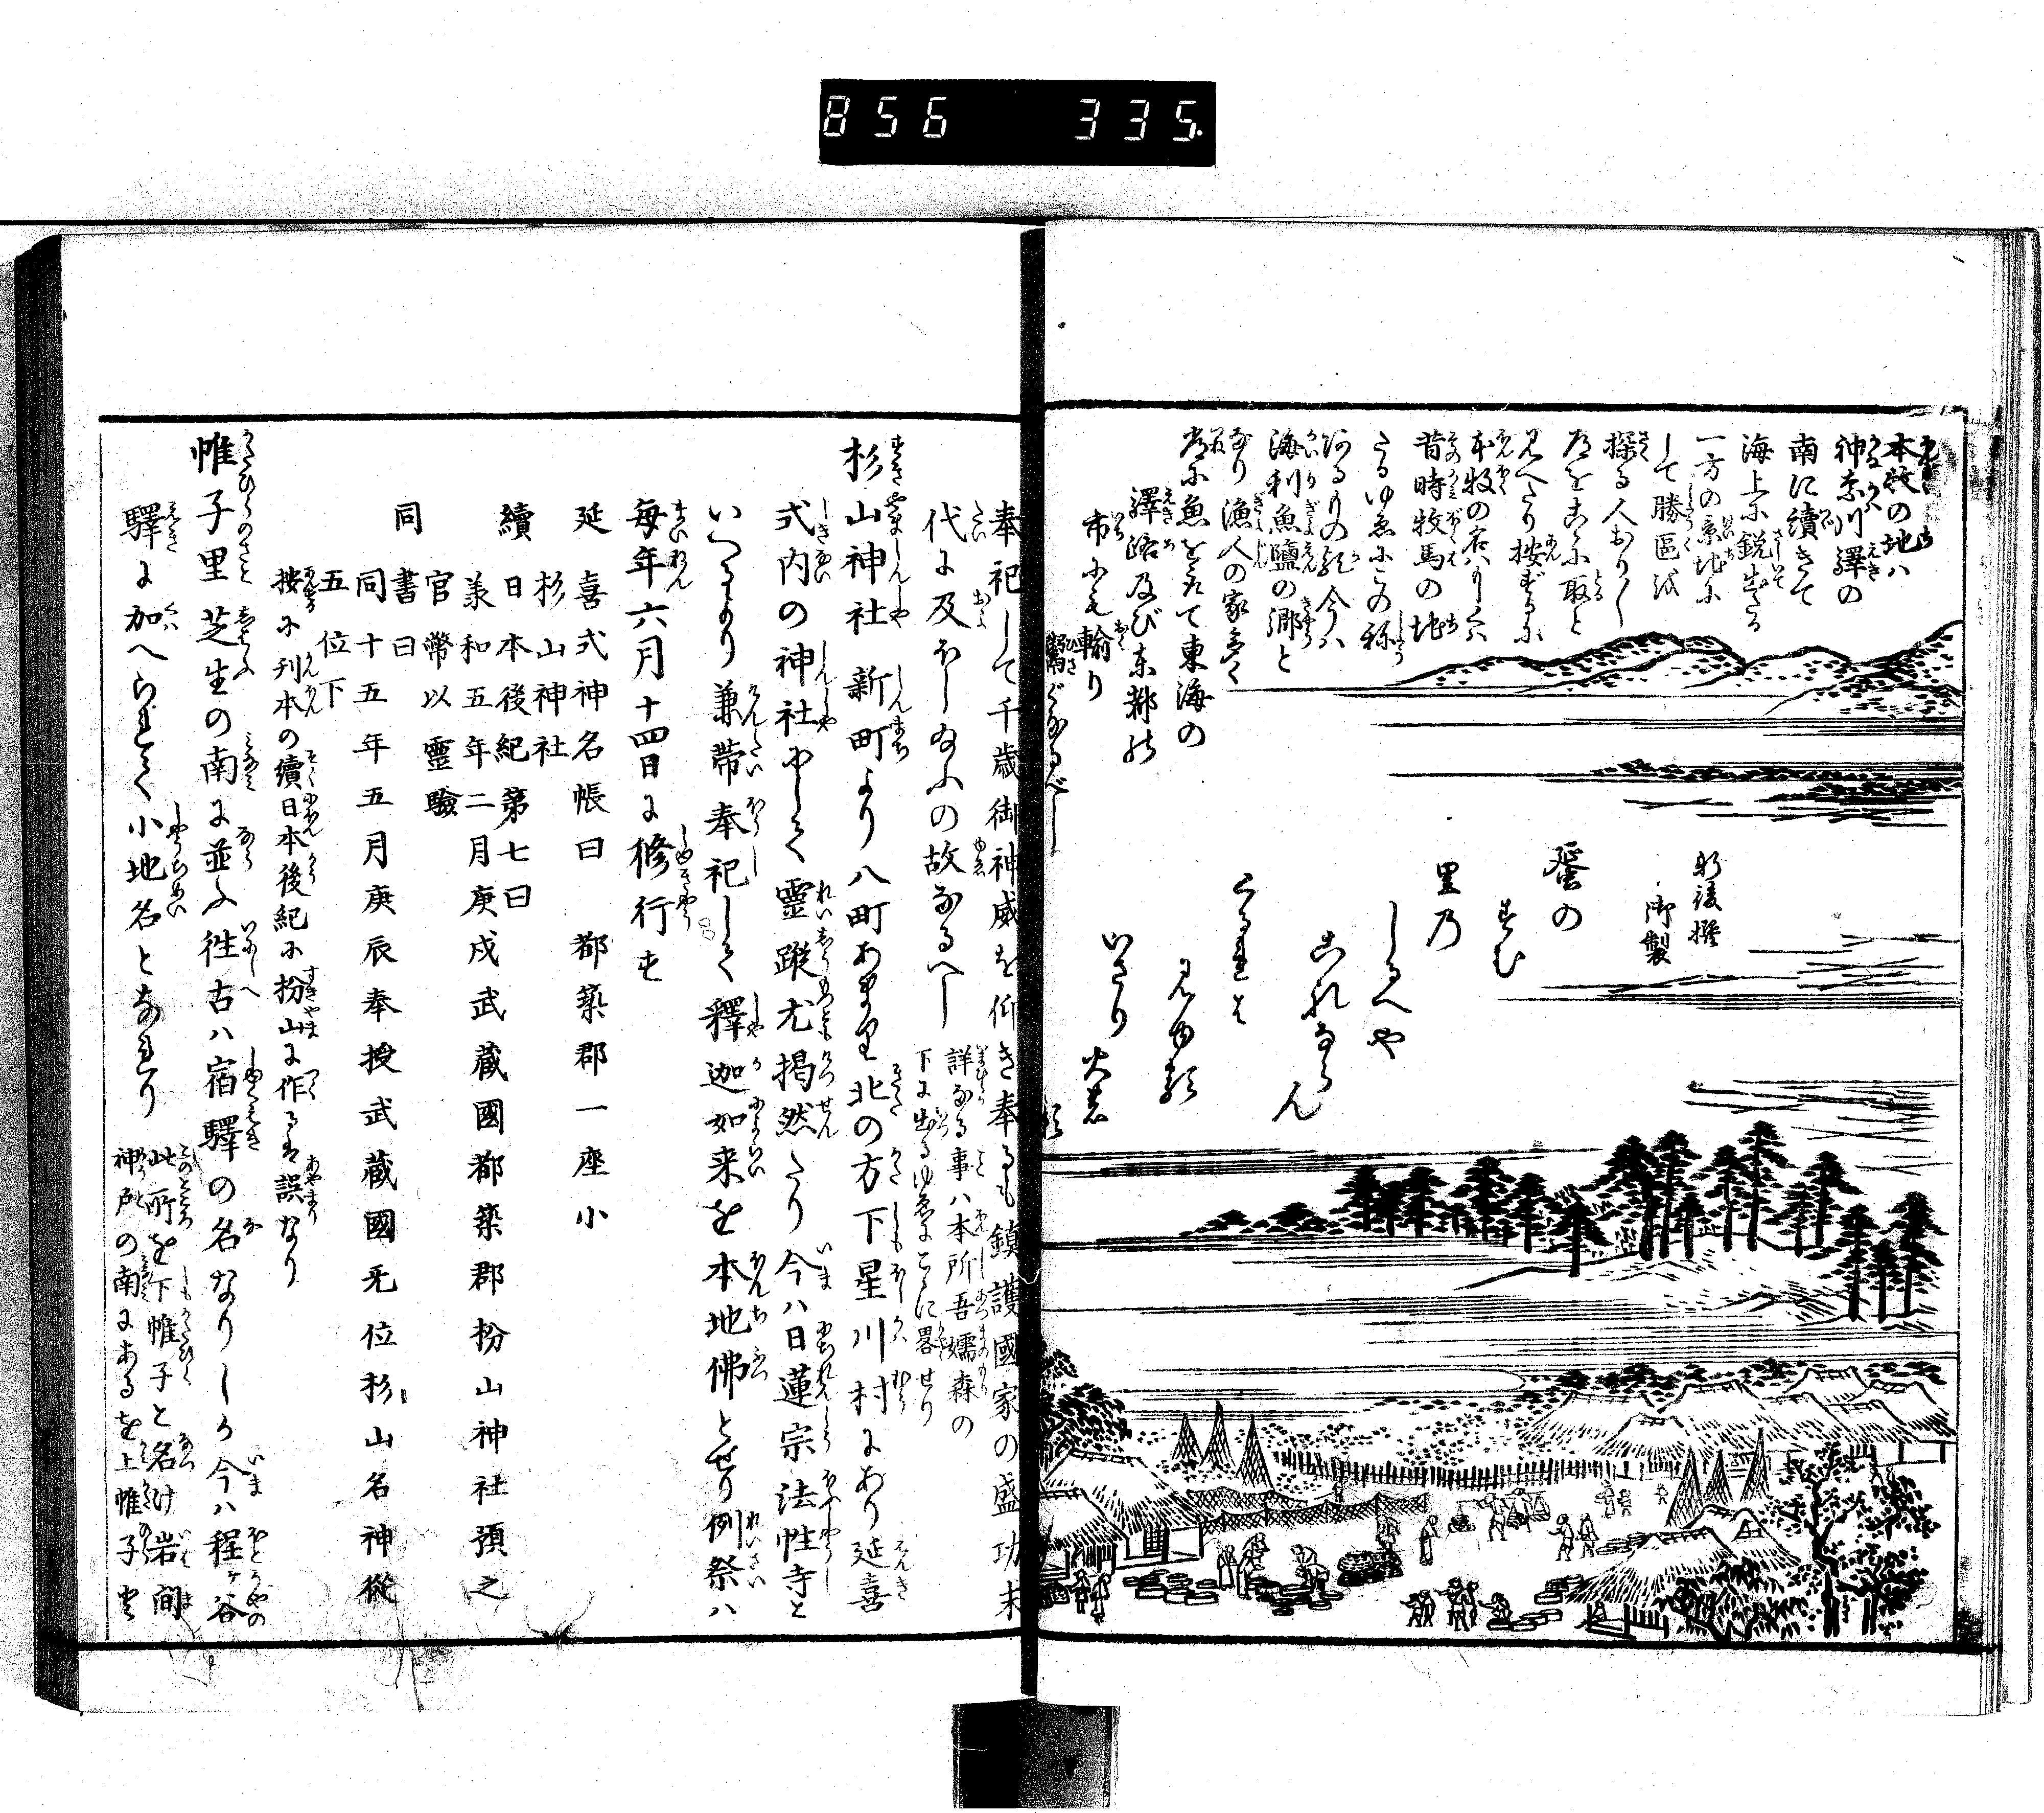 856 335
本牧の地ハ
神奈川驛の
南に續きて
海上に鋭出たる
一方の景地に
して勝區を
探る人おり〱
道をこゝに取と
見へたり按ずるに
本牧の名ハりしくハ
昔時牧馬の地
たるゆゑにこの称
海利魚鹽の郷と
なり漁人の家多く
常に魚をとりて東海の
驛路及び東都の
市にも輸り
鬻ぐなるべし
新後撰
御製
蜑の
すむ
里乃
しるへや
これならん
くるれは
見ゆる
いさり火の
影
奉祀して千歳御神威を仰き奉るも鎮護國家の盛功末
代に及ほし給ふの故なるへし
詳なる事ハ本所吾嬬森の
下に出るゆゑにこゝに畧せり
杉山神社 新町より八町あまり北の方下星川村にあり延喜
式内の神社にして靈蹤尤掲然たり今ハ日蓮宗法性寺と
いへるより兼帯奉祀して釋迦如来を本地佛とせり例祭ハ
毎年六月十四日に修行す
延喜式神名帳曰 都築郡一座小
杉山神社
續日本後紀第七曰
羕和五年二月庚戌武藏國都築郡枌山神社預之
官幣以靈驗
同書曰
同十五年五月庚辰奉授武藏國无位杉山名神從
五位下
按に刊本の續日本後紀に枌山に作るは誤なり
帷子里 芝生の南に並ふ徃古ハ宿驛の名なりしか今ハ程ヶ谷
驛に加へられて小地名となれり
此所を下帷子と名け岩間
神戸の南にあるを上帷子と